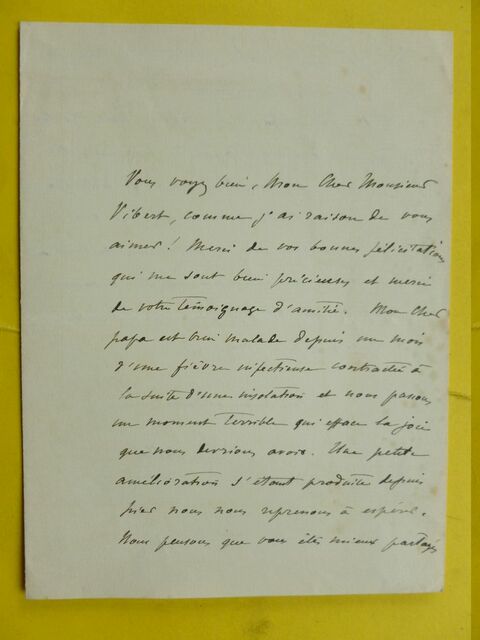 Vous voyez bien, Mon Cher Monsieur
Vibert, comme j'ai raison de vous
aimer! Merci de vos bonnes félicitations
qui me sont bien précieuses et merci
de votre témoignage d'amitié. Mon cher
papa est bien malade depuis un mois
d'une fièvre infectieuse contractée à
la suite d'une insolation et nous passons
un moment terrible qui efface la joie
que nous devrions avoir. Une petite
amélioration s'étant produite depuis
hier nous nous reprenons à espérer.
Nous pensons que vous êtes mieux partagés